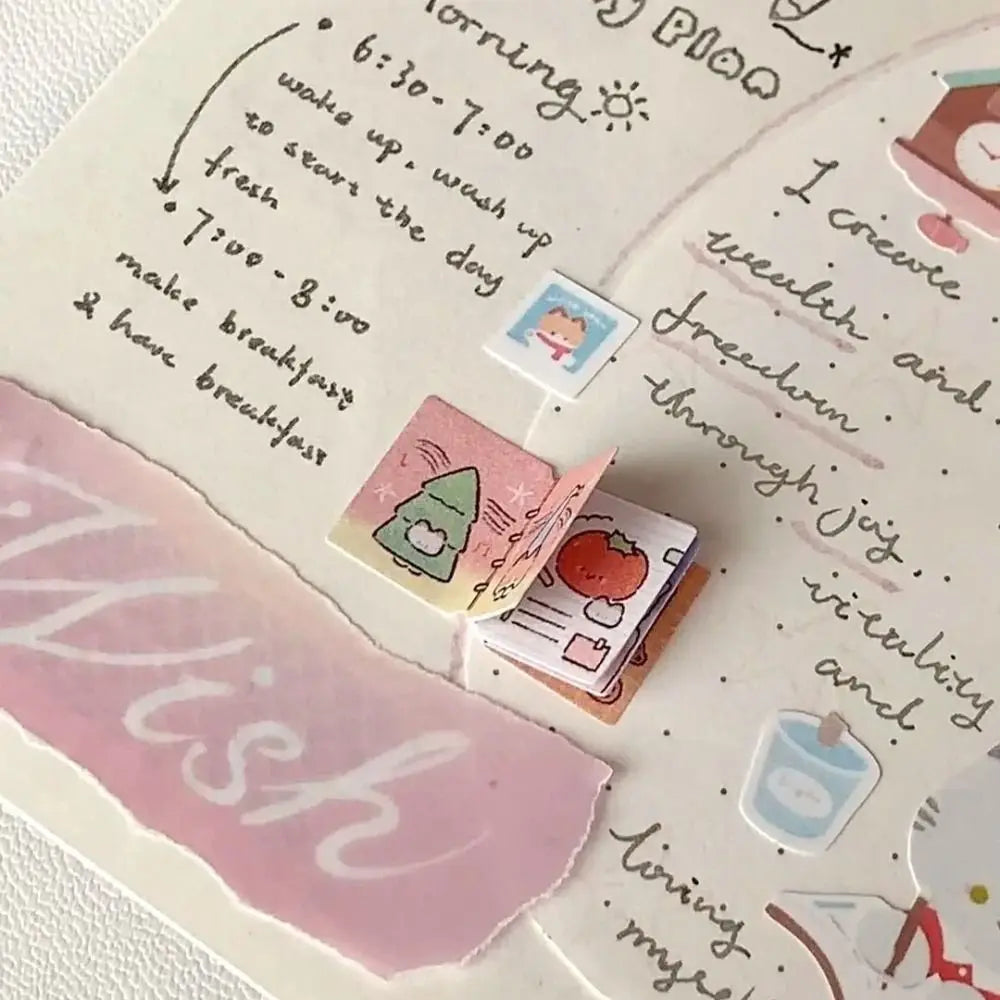 y Plan
orning
6:30 - 7:00
wake up, wash up
to start the day
fresh
7:00 - 8:00
make breakfast
& have breakfast
Wish
I create
wealth and
freedom
through joy..
vitality
and
loving
myse